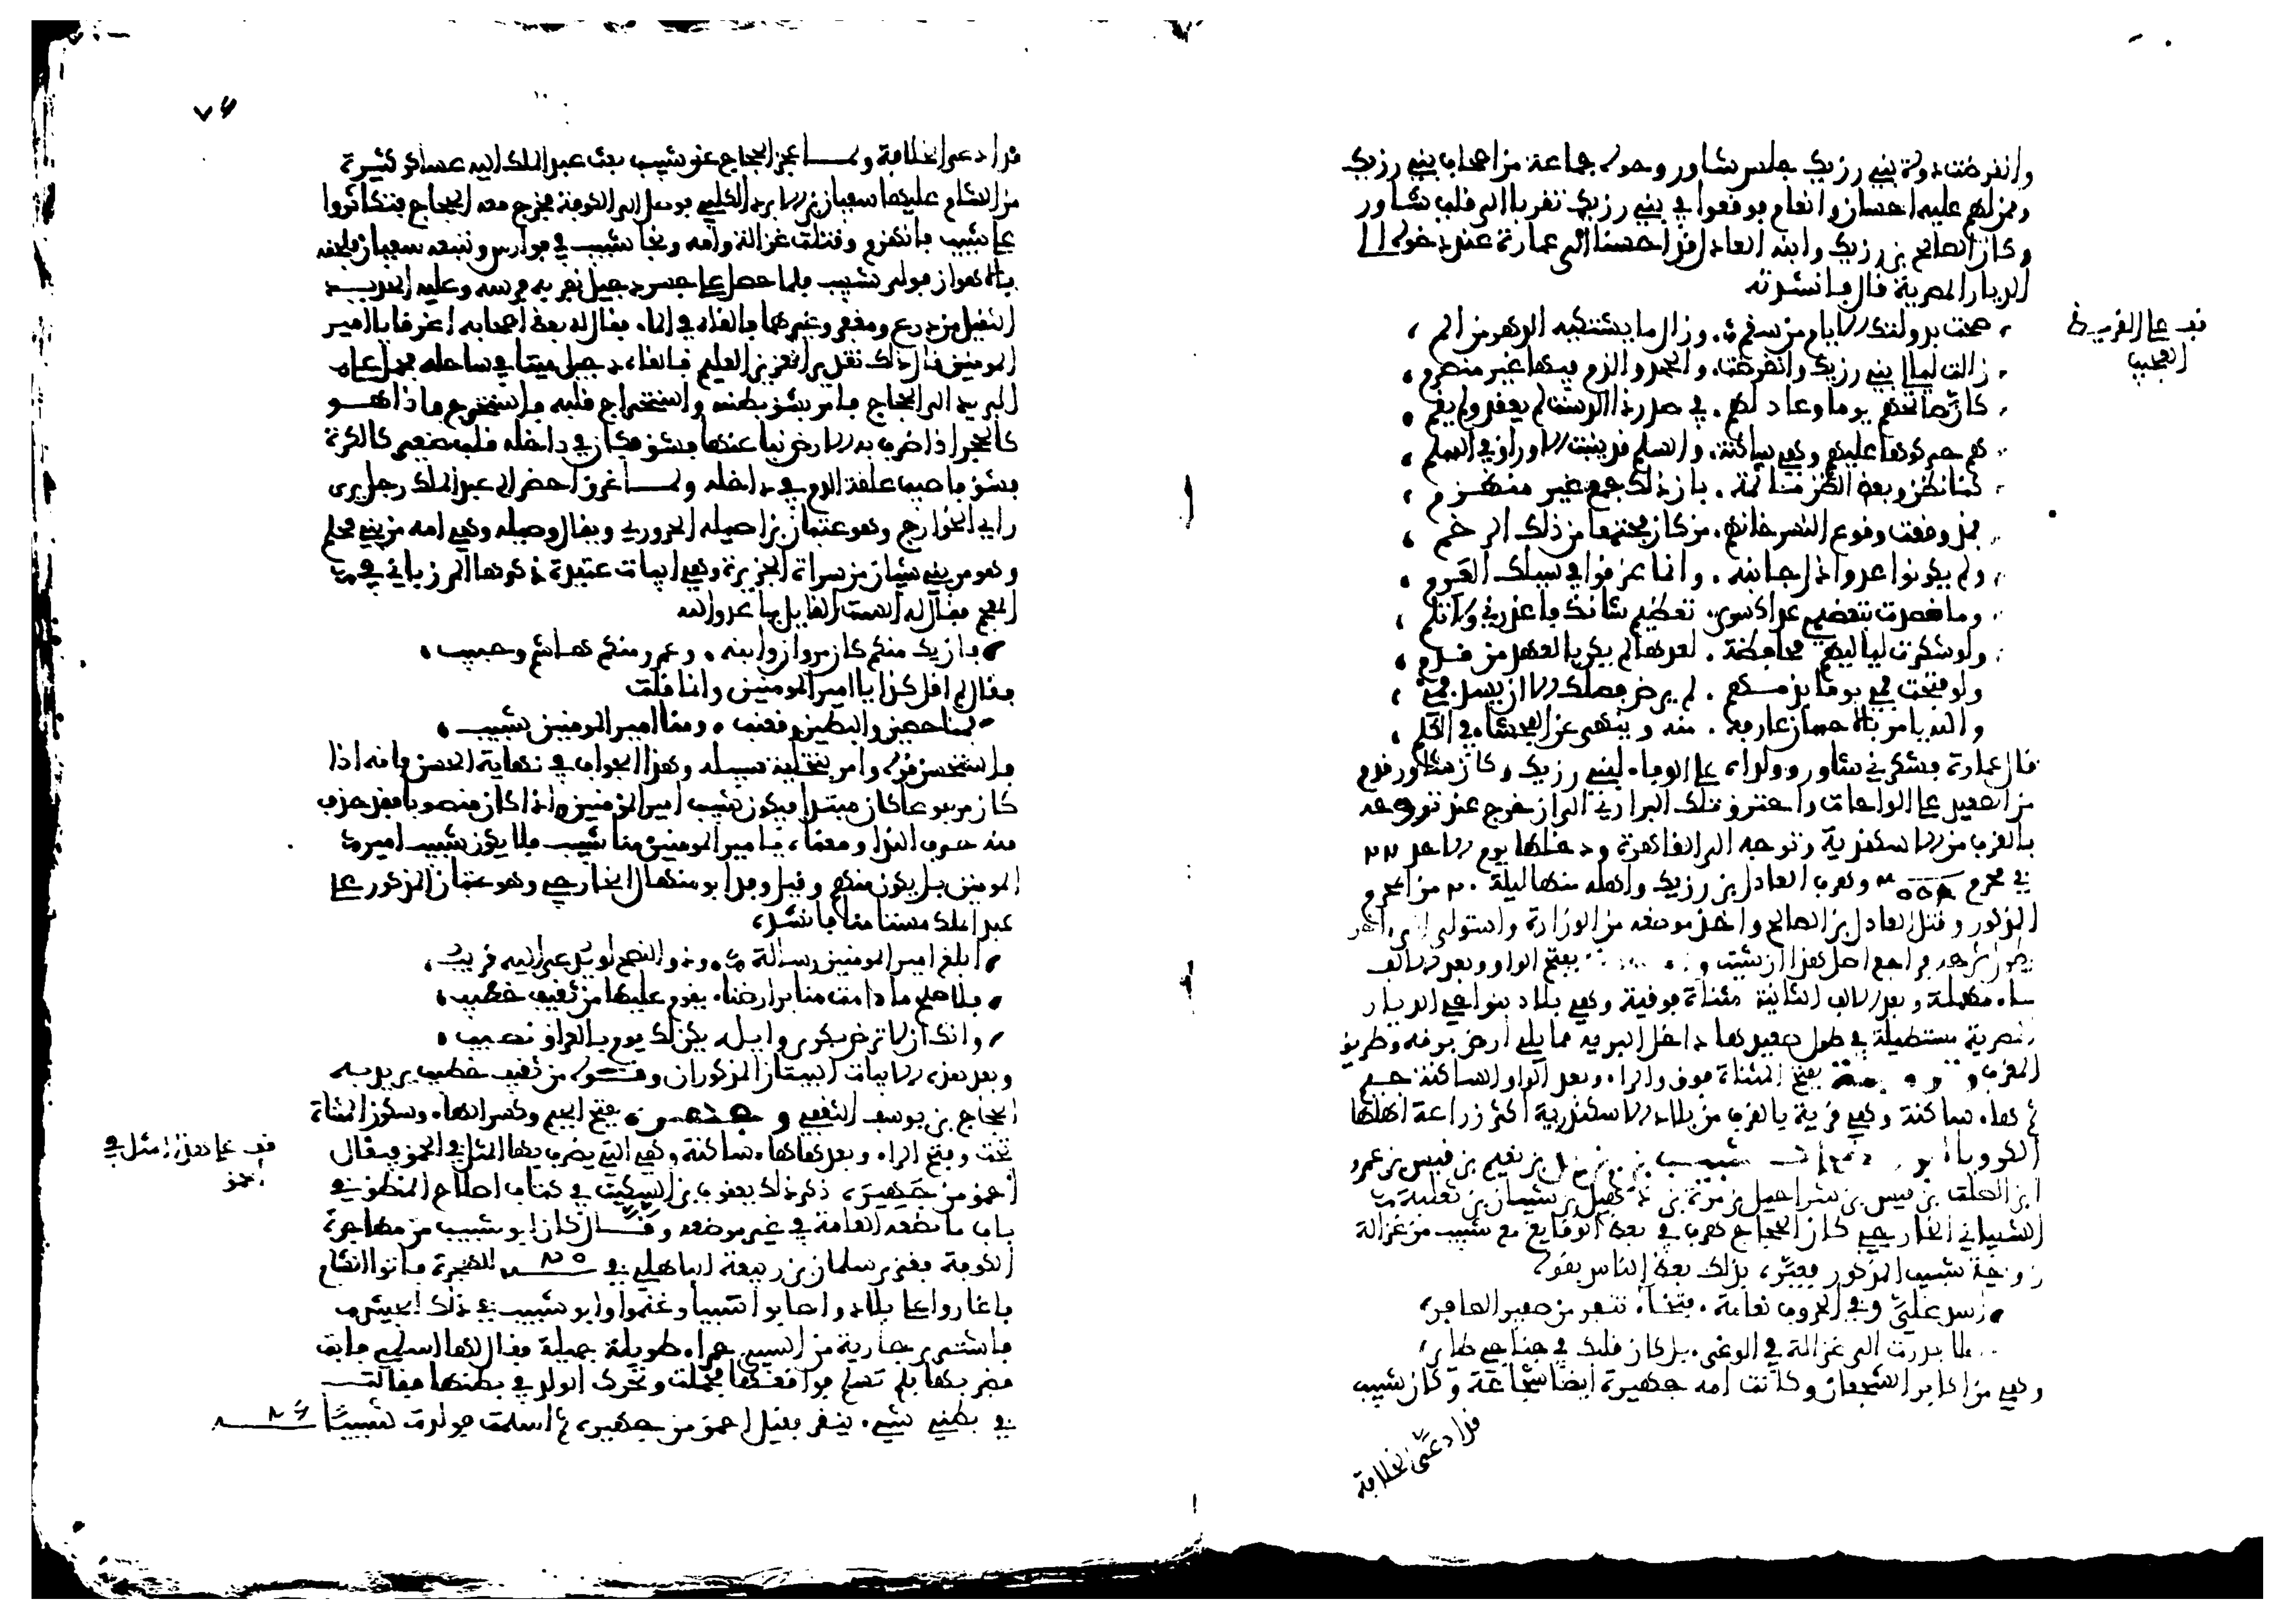 وانقرضت دولة بني رزيك جلس شاور وحوله جماعة من اصحاب بني رزيك
وممن لهم عليه احسان وانعام فوقعوا في بني رزيك تقربا الى قلب شاور
وكان الصالح بن رزيك وابنه العادل قد احسنا الى عمارة عند دخوله الا
الديار المصرية قال فانشدته
صحت بدولتك الايام من سقم . وزال ما يشتكيه الدهر من الم
زالت ليالي بني رزيك وانقرضت . والحمد والذم فيها غير منصرم
كان صالحهم يوما وعادلهم . في صدر ذا الدست لم يقعد ولم يقم
هم حركوها عليهم وهي ساكنة . والسلم قد ينبت الاوراق في السلم
كنا نظن وبعض الظن مأثمة . بان ذلك جمع غير منهزم
فمذ وقعت وقوع النسر خانهم . من كان مجتمعا من ذلك الرخم
ولم يكونوا عدوا ذل جانبه . وانما غرقوا في سيلك العرم
وما قصدت بتعظيمي عداك سوى . تعظيم شانك فاعذرني ولا تلم
ولو شكرت لياليهم محافظة . لعهدها لم يكن بالعهد من قدم
ولو فتحت فمي يوما بذمهم . لم يرض فضلك الا ان يسد فمي
والله يامر بالاحسان عارفة . منه وينهى عن الفحشاء في الكلم
قال عمارة فشكرني شاور وولداه على الوفاء لبني رزيك وكان شاور قدم
من الصعيد على الواحات واخترق تلك البراري الى ان خرج عند تروجه
بالقرب من الاسكندرية وتوجه الى القاهرة ودخلها يوم الاحد ٢٢
في محرم ٥٥٨ وهرب العادل بن رزيك واهله منها ليلة ٢٠ من المحرم
المذكور وقتل العادل بن الصالح واخذ موضعه من الوزارة واستولى
فراجع اصل هذا ان شئت بفتح الواو وبعد الالف
حاء مهملة وبعد الالف الثانية مثناة فوقية وهي بلاد بنواحي الديار
المصرية مستطيلة في طول صعيدها داخل البرية مما يلي ارض برقة وطريق
المغرب وتروجة بفتح المثناة فوق والراء وبعد الواو الساكنة جيم
ثم هاء ساكنة وهي قرية بالقرب من بلاد الاسكندرية اكثر زراعة اهلها
الكرويا شبيب بن يزيد بن نعيم بن قيس بن عمرو
ابن الصلت بن قيس بن شراحيل بن مرة بن ذهل بن شيبان بن ثعلبة
الشيباني الخارجي كان الحجاج هرب في بعض الوقايع مع شبيب من غزالة
زوجة شبيب المذكور فعيره بذلك بعض الناس بقوله
اسد علي وفي الحروب نعامة . فتخاء تنفر من صفير الصافر
هلا برزت الى غزالة في الوغى . بل كان قلبك في جناحي طاير
وهي من اكابر الشجعان وكانت امه جهيرة ايضا شجاعة وكان شبيب
قد ادعى الخلافة
قف على القريض
العجيب
٧٤
قد ادعى الخلافة ولما عجز الحجاج عن شبيب بعث عبد الملك اليه عساكر كثيرة
من الشام عليها سفيان بن الابرد الكلبي فوصل الى الكوفة فخرج معه الحجاج فتكاثروا
على شبيب فانهزم وقتلت غزالة وامه ونجا شبيب في فوارس وتبعه سفيان فلحقه
بالاهواز فولى شبيب فلما حصل على جسر دجيل نفر به فرسه وعليه الحديد
الثقيل من درع ومغفر وغيرهما فالقاه في الماء فقال له بعض اصحابه اغرقا يا امير
المومنين قال ذلك تقدير العزيز العليم فالقاه دجيل ميتا في ساحله فحمل على
البريد الى الحجاج فامر بشق بطنه واستخراج قلبه فاستخرج فاذا هو
كالحجر اذا ضرب به الارض نبا عنها فشق فكان في داخله قلب صغير كالكرة
فشق فاصيب علقة الدم في داخله ولما غرق احضر الى عبد الملك رجل يرى
راي الخوارج وهو عتبان بن اصيله الحروري ويقال وصيله وهي امه من بني محلم
وهو من بني شيبان من سراة الجزيرة وهي ابيات عديدة ذكرها المرزباني في
المعجم فقال له الست القايل يا عدو الله
فان يك منكم كان مروان وابنه . وعمرو منكم هاشم وحبيب
فقال لم اقل كذا يا امير المومنين وانما قلت
فمنا حصين والبطين وقعنب . ومنا امير المومنين شبيب
فاستحسن قوله وامر بتخلية سبيله وهذا الجواب في نهاية الحسن فانه اذا
كان مرفوعا كان مبتدا فيكون شبيب امير المومنين واذا كان منصوبا فقد حذف
منه حرف النداء ومعناه يا امير المومنين منا شبيب فلا يكون شبيب امير
المومنين بل يكون منهم وقيل وفد ابو منهال الخارجي وهو عتبان المذكور على
عبد الملك مستامنا فانشد
ابلغ امير المومنين رسالة . وذو النصح لو يدعى اليه قريب
فلا صلح ما دامت منابر ارضنا . يقوم عليها من ثقيف خطيب
وانك ان لا ترض بكر بن وايل . يكن لك يوم بالعراق عصيب
وبعد هذه الابيات البيتان المذكوران وقوله من ثقيف خطيب يريد به
الحجاج بن يوسف الثقفي وجهيرة بفتح الجيم وكسر الهاء وسكون المثناة
تحت وفتح الراء وبعدها هاء ساكنة وهي التي يضرب بها المثل في الحمق فيقال
احمق من جهيرة ذكر ذلك يعقوب بن السكيت في كتاب اصلاح المنطق في
باب ما تضعه العامة في غير موضعه وقال كان ابو شبيب من مهاجرة
الكوفة فغزى سلمان بن ربيعة الباهلي في ٢٥ للهجرة فاتوا الشام
فاغاروا على بلاد واصابوا سبيا وغنموا وابو شبيب في ذلك الجيش
فاشترى جارية من السبي حمراء طويلة جميلة فقال لها اسلمي فابت
فضربها فلم تسلم فواقعها فحملت وتحرك الولد في بطنها فقالت
في بطني شيء ينقر فقيل احمق من جهيرة ثم اسلمت فولدت شبيبا ٢٦
قف على هذا المثل في
احمق